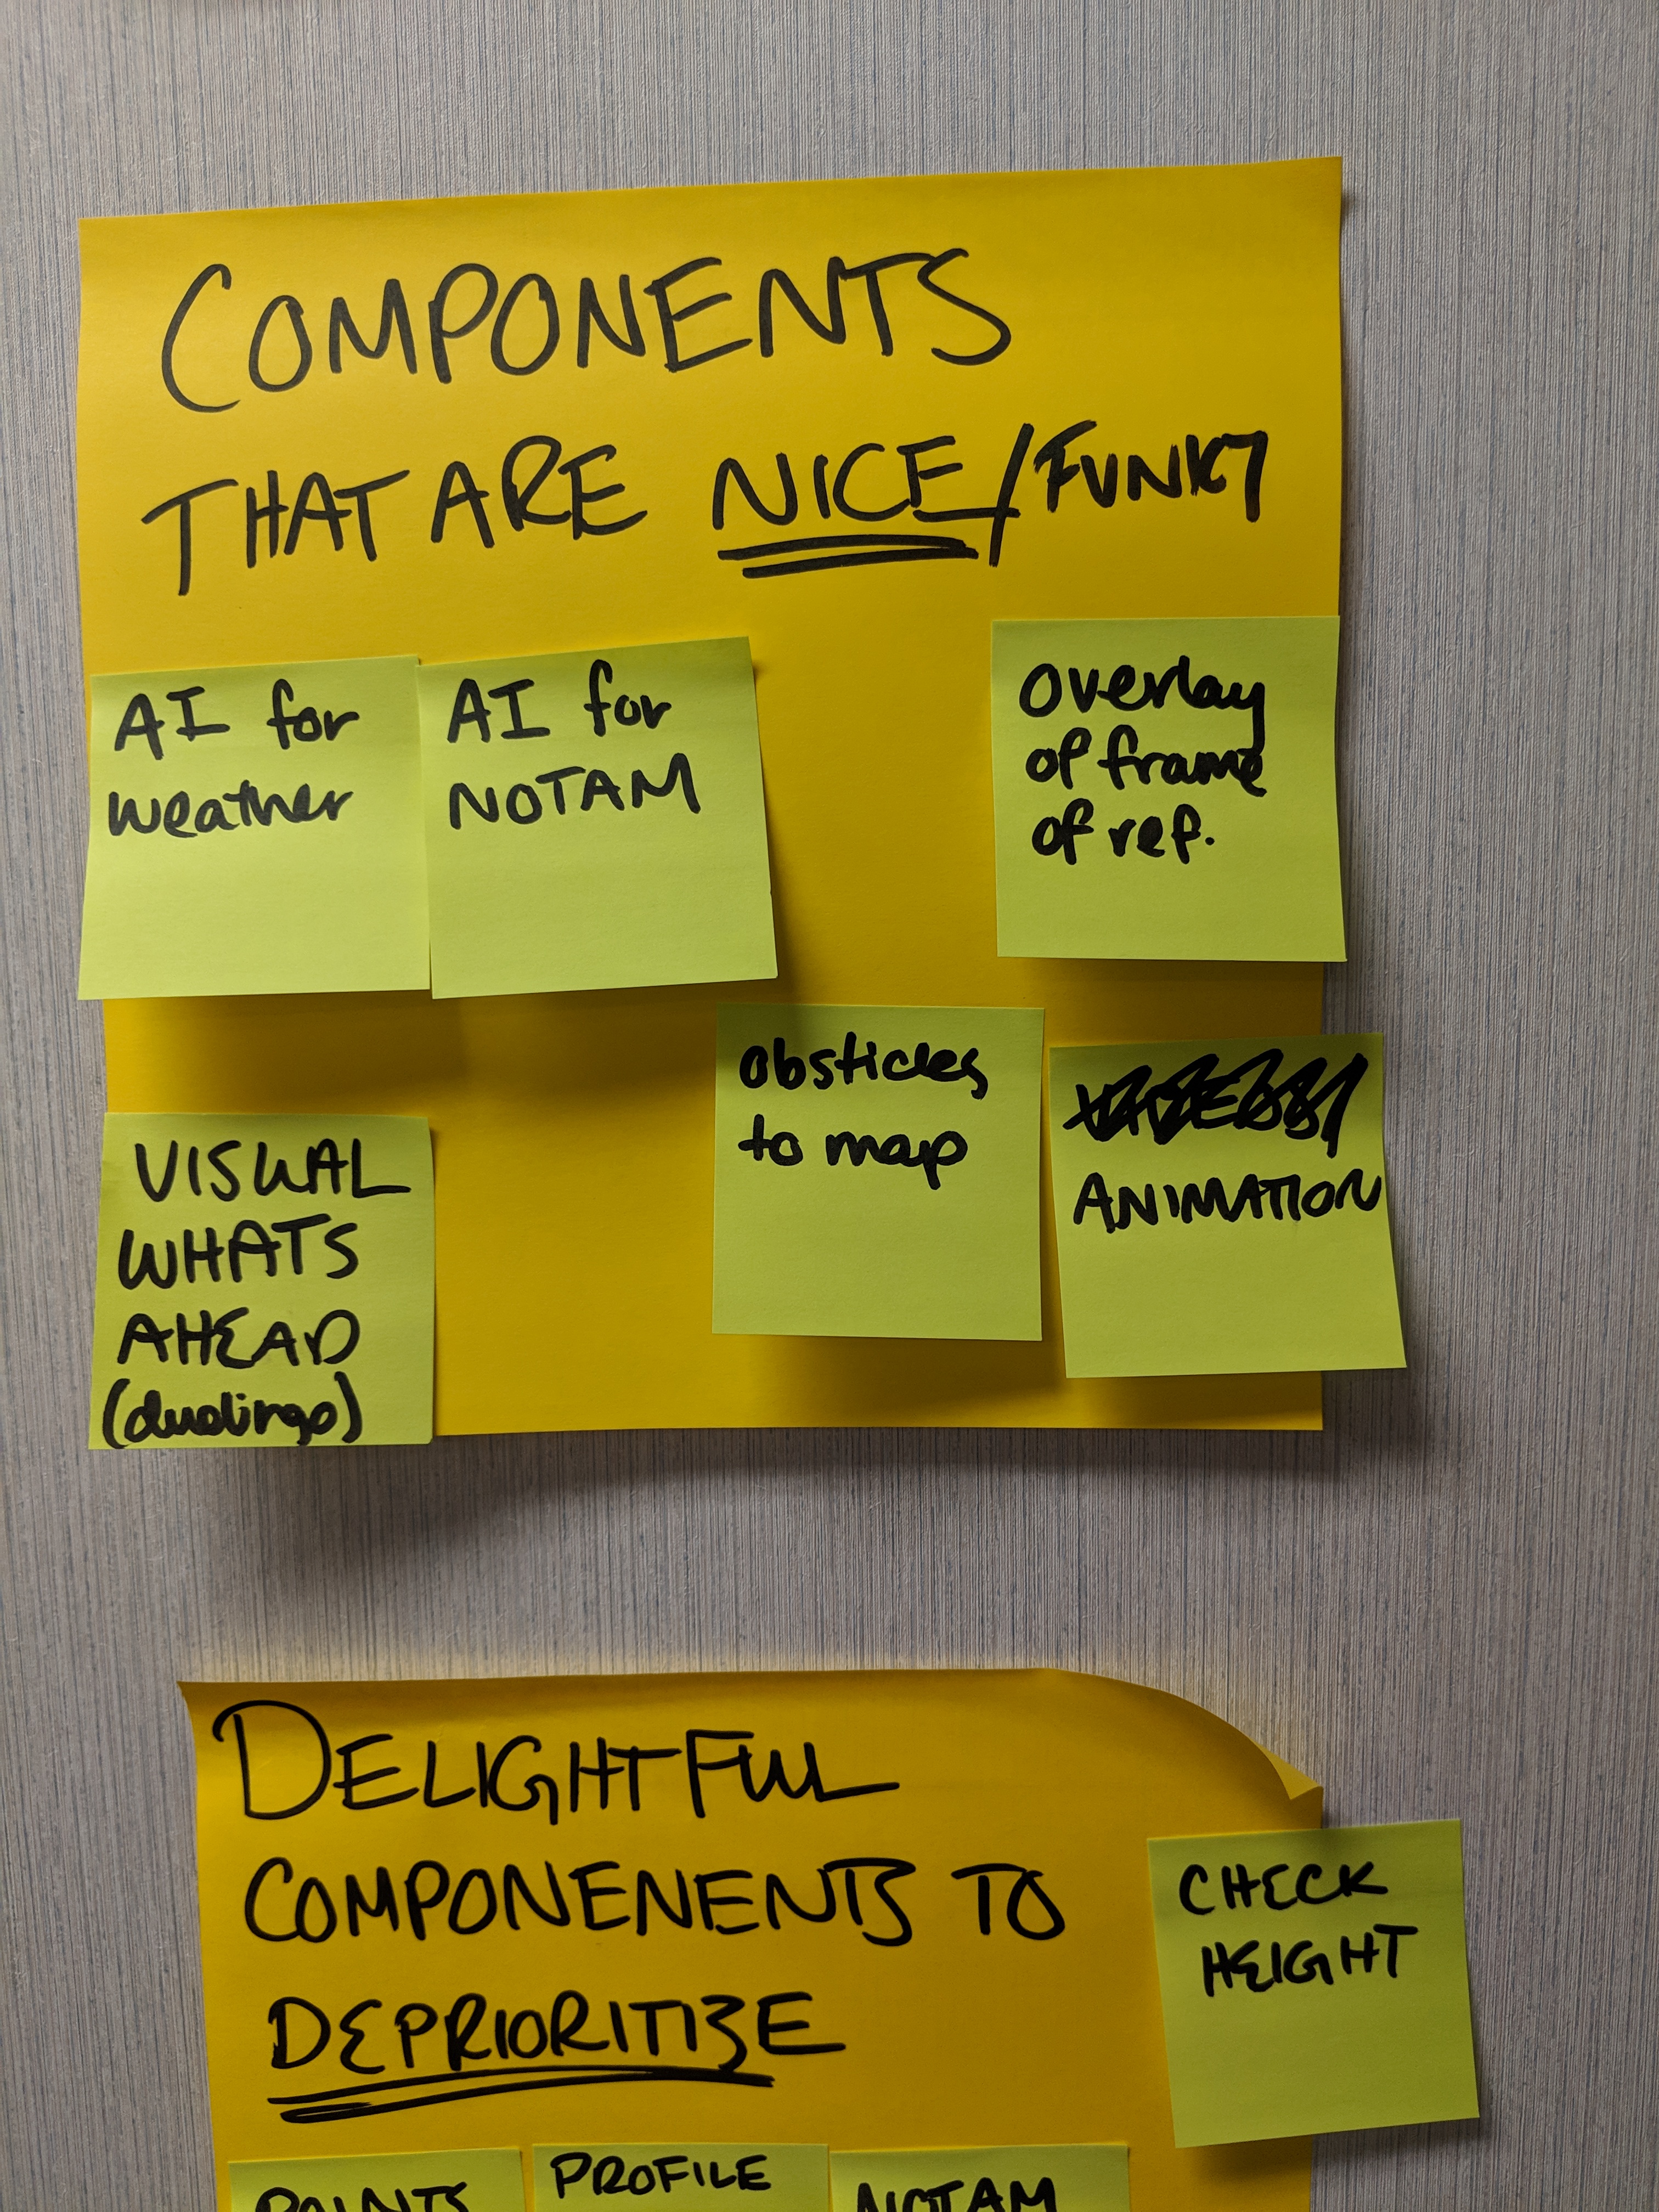 COMPONENTS
THAT ARE NICE/FUNKY
AI for
weather
AI for
NOTAM
Overlay
of frame
of ref.
Obsticles
to map
ANIMATION
VISUAL
WHATS
AHEAD
(duolingo)
DELIGHTFUL
COMPONENENTS TO
DEPRIORITIZE
CHECK
HEIGHT
POINTS
PROFILE
NOTAM